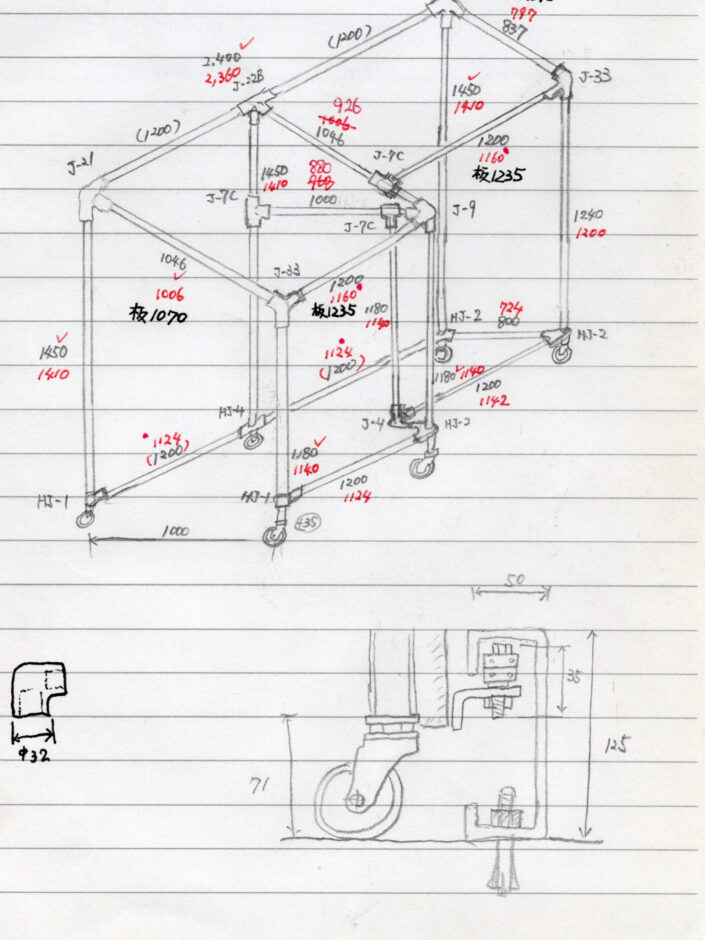 797
837
(1200)
2,400
2,360
J-22B
J-33
1450
1410
926
1006
1046
(1200)
1200
1160
板1235
J-7C
J-21
1450
1410
880
960
1000
J-7C
J-7C
J-9
1240
1200
1046
1006
板1070
J-33
1200
1160
板1235
1180
1140
HJ-2
724
800
HJ-2
1450
1410
1124
(1200)
1180
1140
1200
1142
HJ-4
J-4
HJ-2
1124
(1200)
1180
1140
1200
1124
HJ-1
HJ-1
435
1000
50
35
125
71
φ32